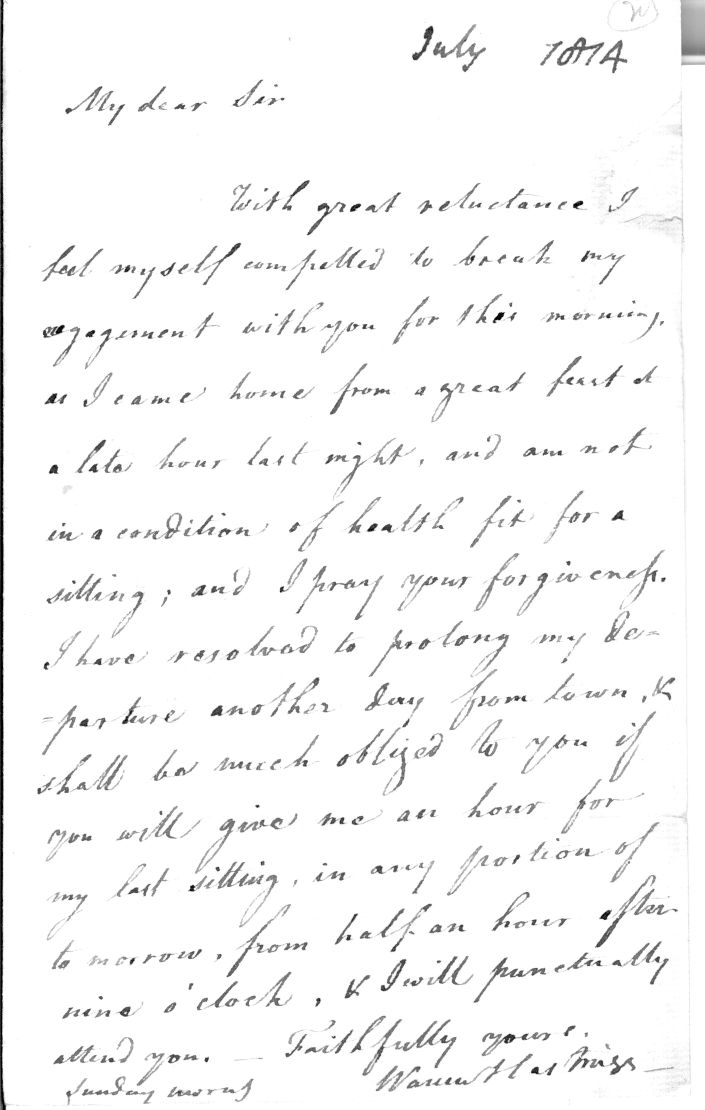 July 1814
My dear Sir
With great reluctance I
feel myself compelled to break my
engagement with you for this morning,
as I came home from a great feast at
a late hour last night, and am not
in a condition of health fit for a
sitting; and I pray your forgiveness.
I have resolved to prolong my de=
=parture another day from town, &
shall be much obliged to you if
you will give me an hour for
my last sitting, in any portion of
to morrow, from half an hour after
nine o'clock, & I will punctually
attend you. — Faithfully yours.
Warren Hastings
Sunday morng